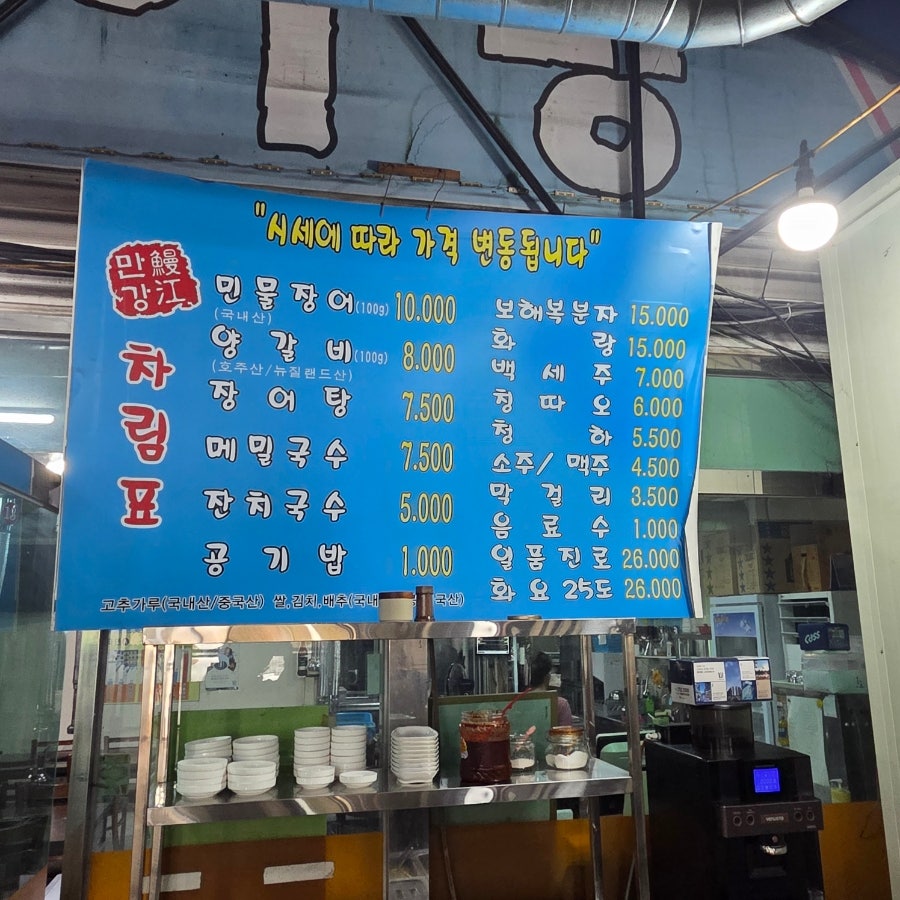 "시세에 따라 가격 변동됩니다"
만鰻
강江
차림표
민물장어(100g) 10.000
(국내산)
양갈비(100g) 8.000
(호주산/뉴질랜드산)
장어탕 7.500
메밀국수 7.500
잔치국수 5.000
공기밥 1.000
보해복분자 15.000
화랑 15.000
백세주 7.000
청따오 6.000
청하 5.500
소주/맥주 4.500
막걸리 3.500
음료수 1.000
일품진로 26.000
화요25도 26.000
고추가루(국내산/중국산) 쌀,김치,배추(국내 국산)
Cass
VENUSTA